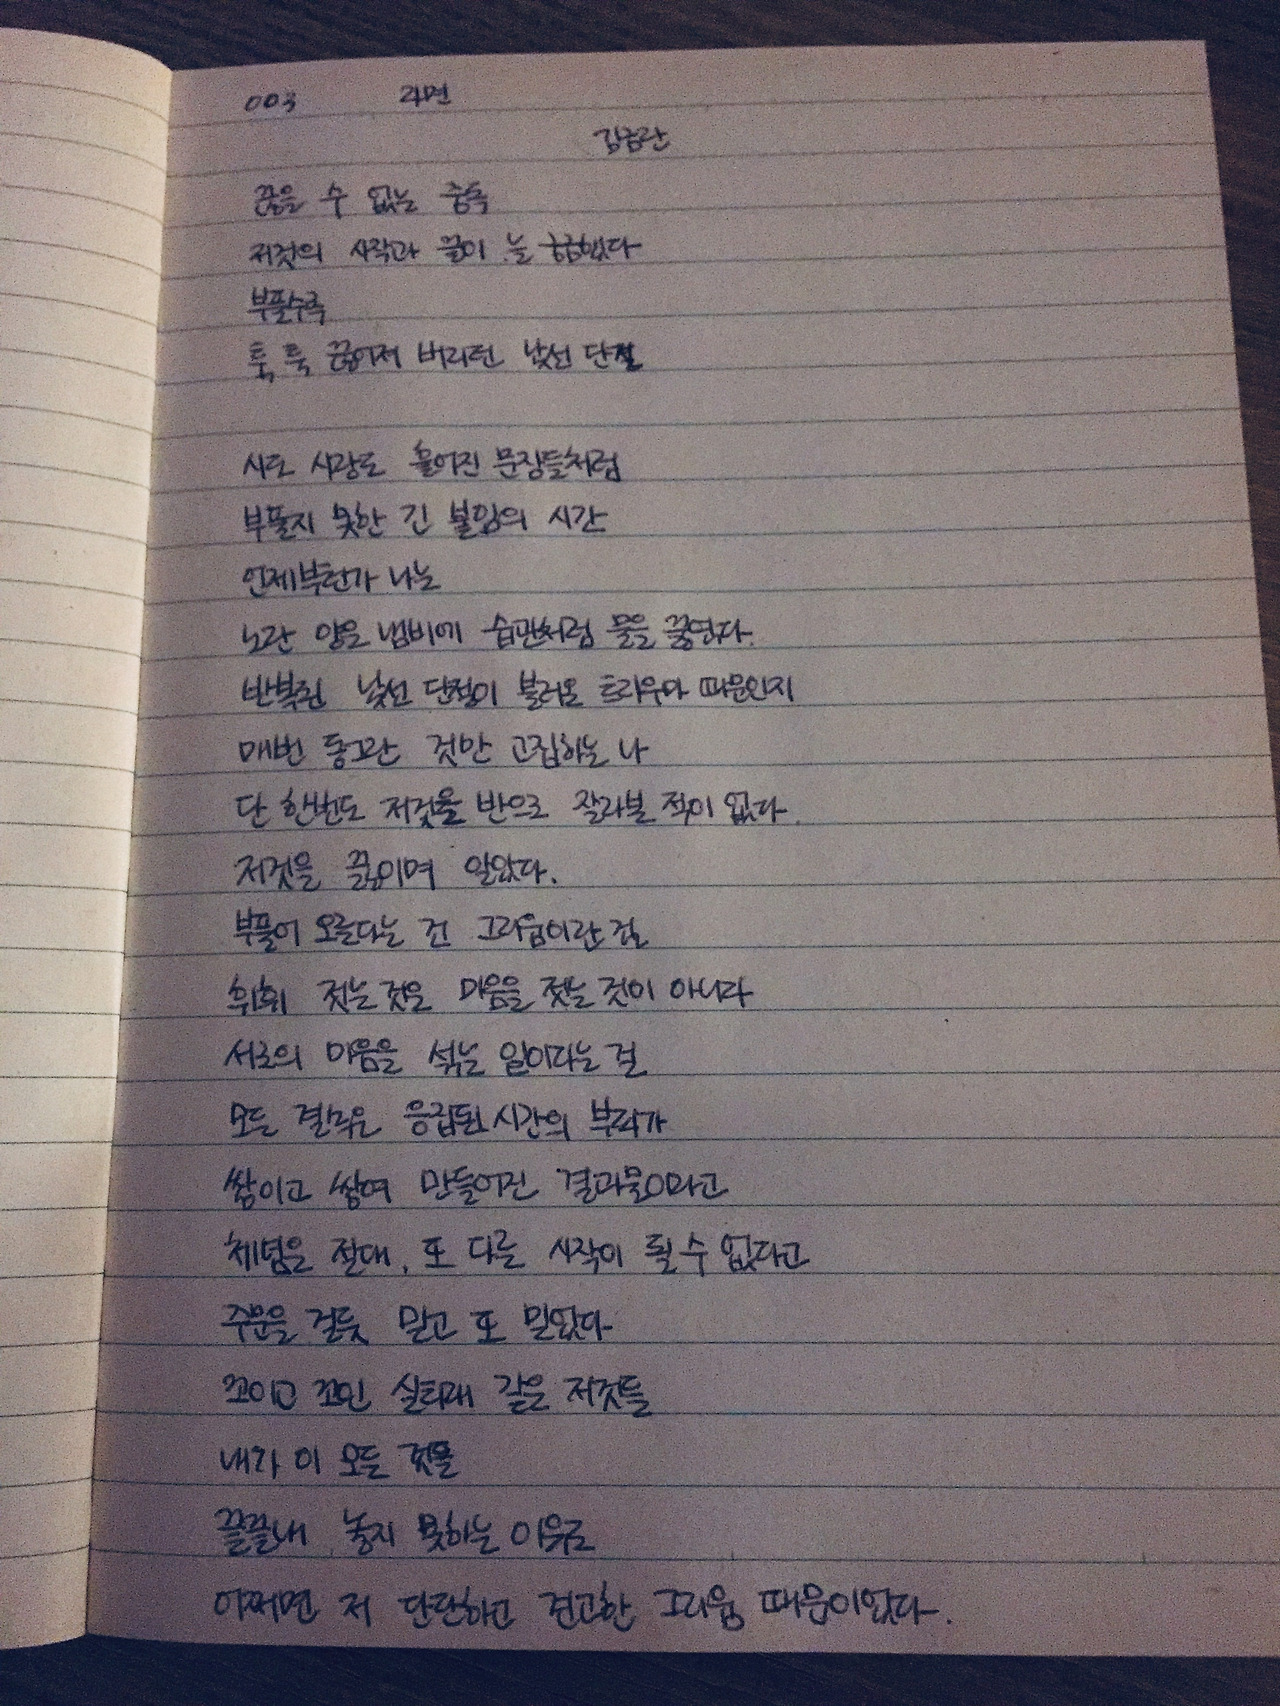 003 라면
김금란
끊을 수 없는 중독
저것의 시작과 끝이 늘 궁금했다
부풀수록
툭, 툭 끊어져 버리던 낯선 단절
시도 사랑도 흩어진 문장들처럼
부풀지 못한 긴 불임의 시간
언제부턴가 나는
노란 양은 냄비에 습관처럼 물을 끓였다.
반복된 낯선 단절이 불러온 트라우마 때문인지
매번 동그란 것만 고집하는 나
단 한번도 저것을 반으로 잘라본 적이 없다.
저것을 끓이며 알았다.
부풀어 오른다는 건 그리움이란 걸
휘휘 젓는 것은 마음을 젓는 것이 아니라
서로의 마음을 섞는 일이다는 걸
모든 결속은 응집된 시간의 부피가
쌓이고 쌓여 만들어진 결과물이라고
체념은 절대, 또 다른 시작이 될 수 없다고
주문을 걸듯 말고 또 말았다
꼬이고 꼬인 실타래 같은 저것들
내가 이 모든 것을
끝끝내 놓지 못하는 이유도
어쩌면 저 단단하고 견고한 그리움 때문이었다.